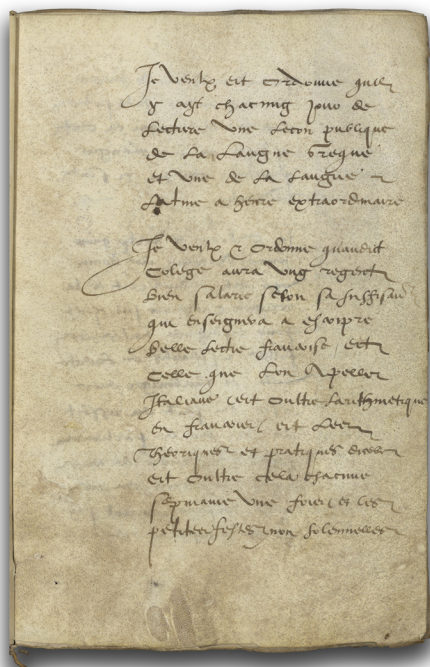 Je veulx et Ordonne quil
y ayt chacung jour de
Lecture Une Lecon publique
de La Langue Greque
et Une de La Langue
Latine a heure extraordinaire
Je veulx & Ordonne quaudit
Colege aura Ung regent
bien salarie selon sa suffisan
qui enseignera a escripre
belle Lectre francoise et
Celle que Lon Apelle
Italiane et Oultre Larithmetique
en francois et
Theoriques et pratiques
et Oultre cela chacune
sepmaine Une fois et les
petites festes non solennelles